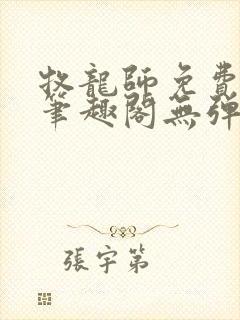 牧龍師免費
筆趣閣無彈
張宇第